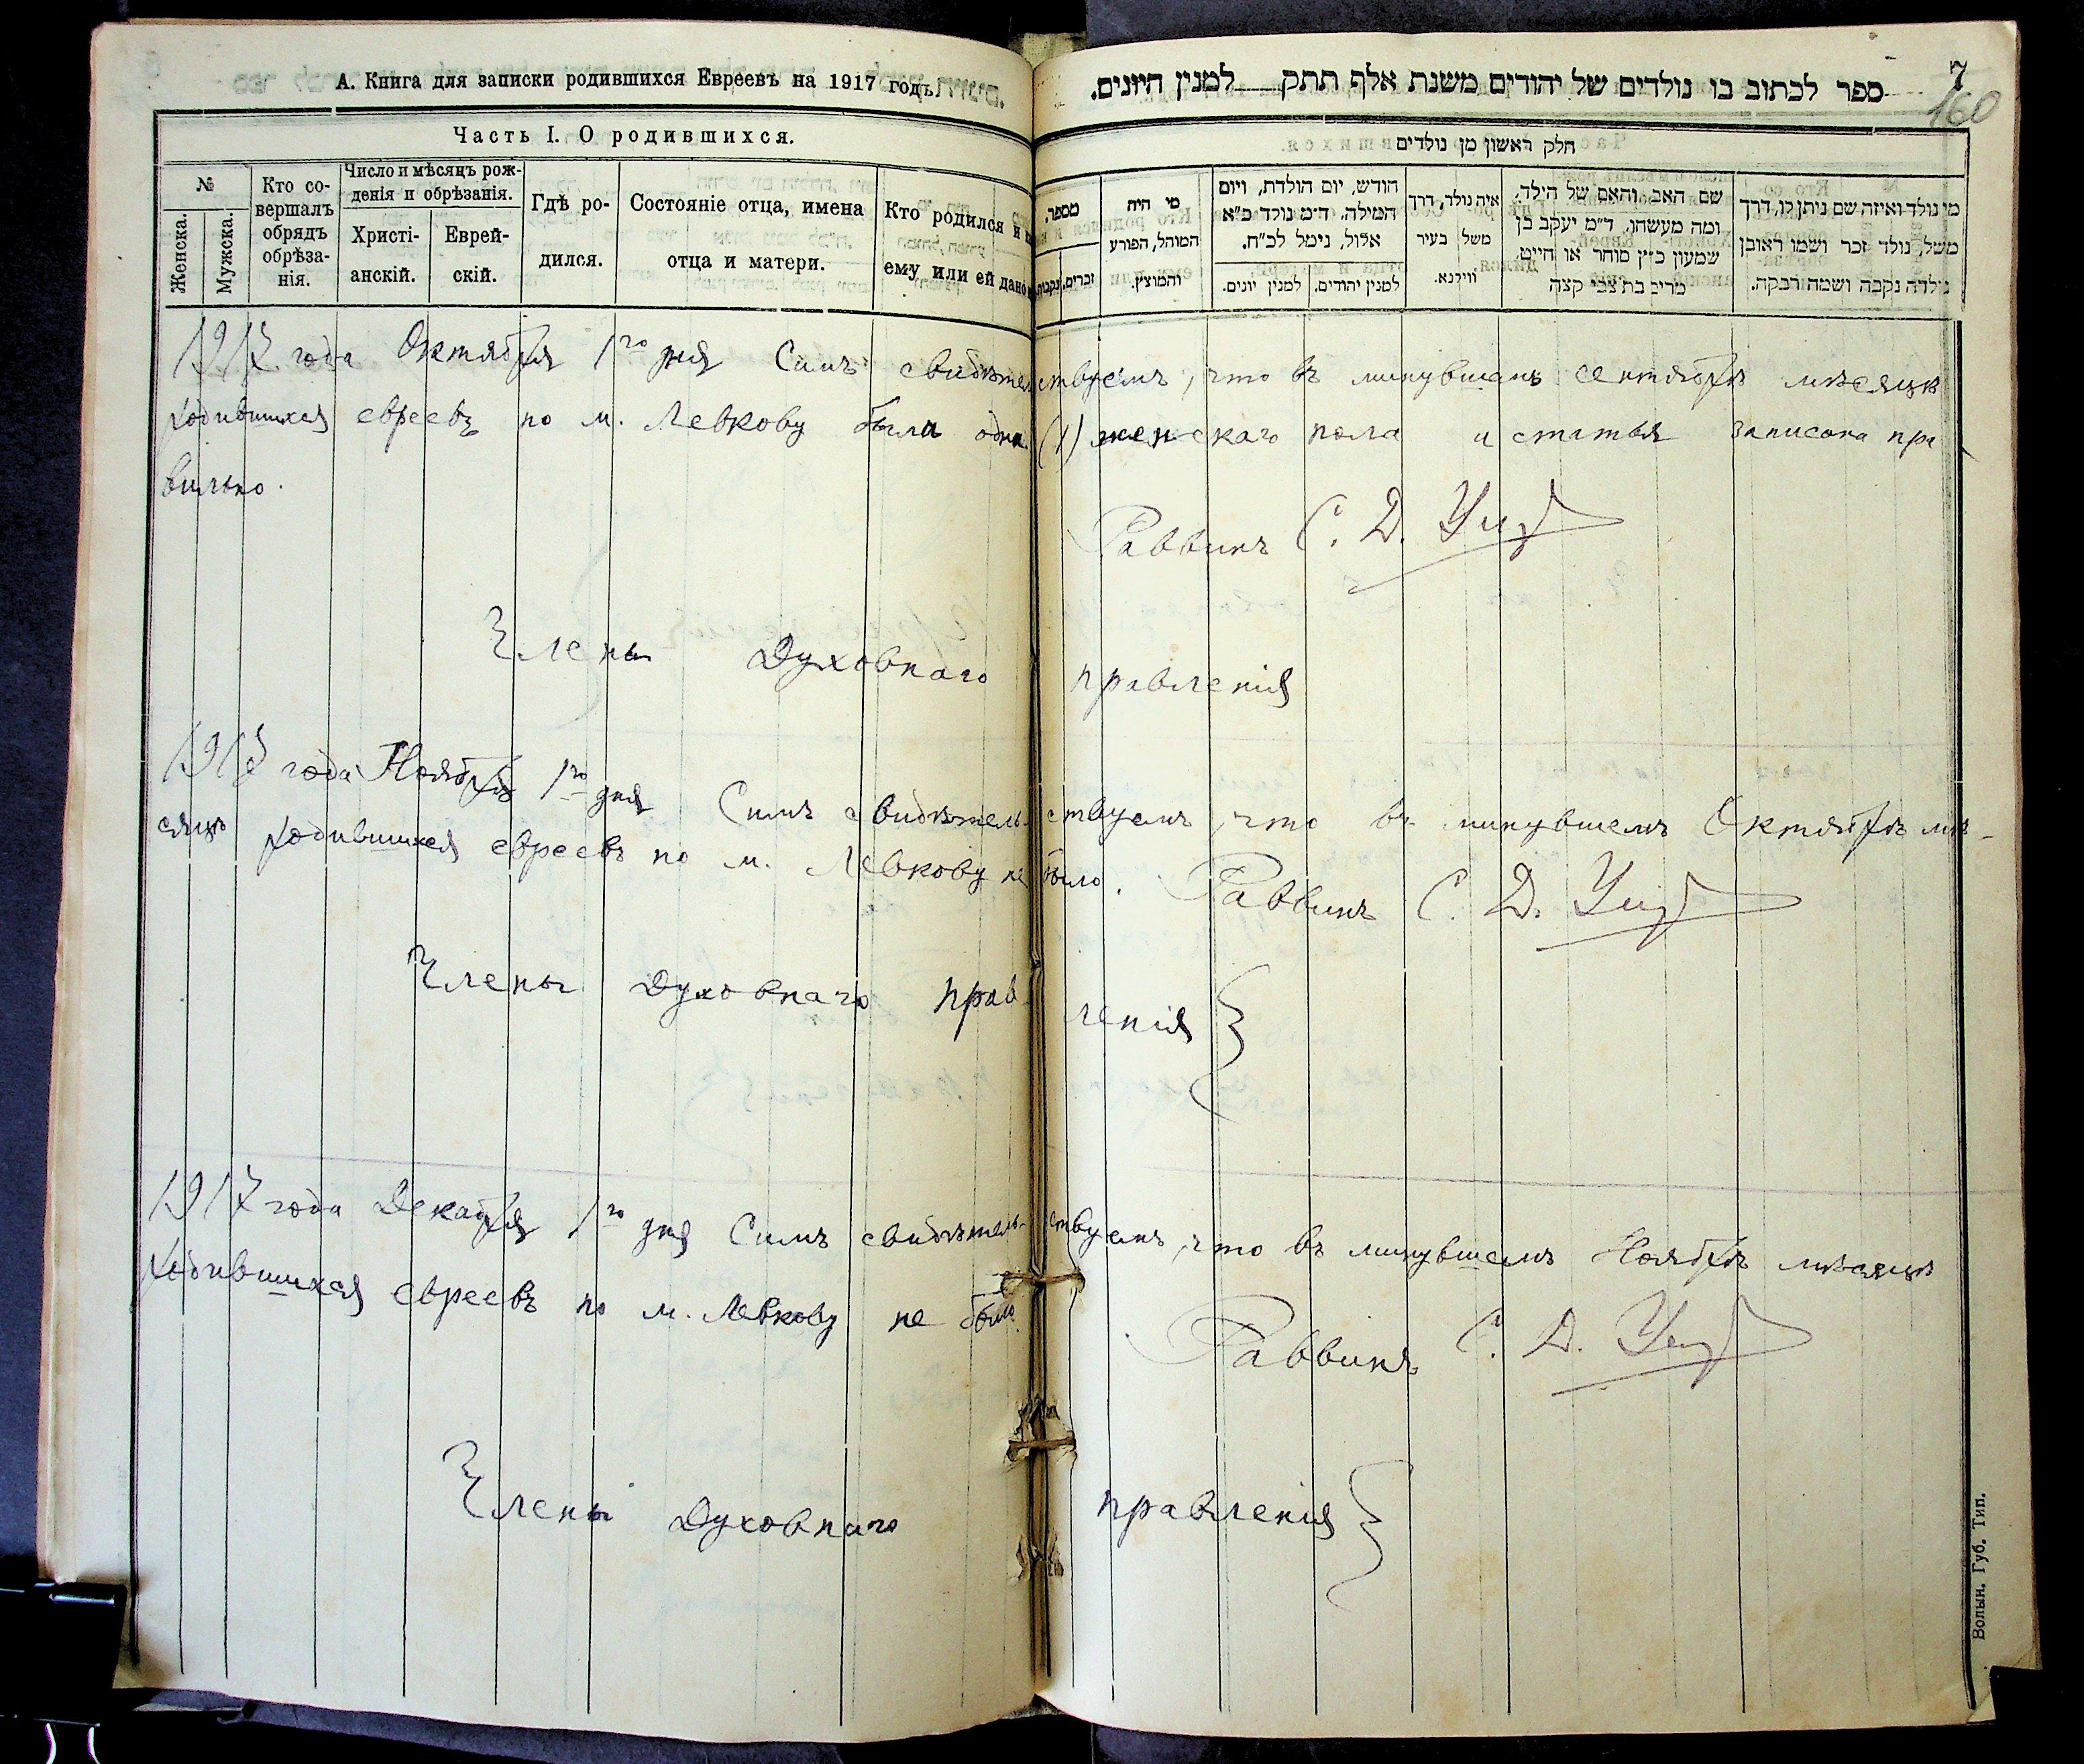 А. Книга для записки родившихся Евреевъ на 1917 годъ.
Часть I. О родившихся.
№
Женска.
Мужска.
Кто со-
вершалъ
обрядъ
обрѣза-
нія.
Число и мѣсяцъ рож-
денія и обрѣзанія.
Христі-
анскій.
Еврей-
скій.
Гдѣ ро-
дился.
Состояніе отца, имена
отца и матери.
Кто родился и
ему или ей дано
7
160
ספר לכתוב בו נולדים של יהודים משנת אלף תתק למנין היונים.
חלק ראשון מן נולדים
מספר.
זכרים.
נקבות.
מי היה
המוהל, הפורע
והמוצץ.
חודש, יום הולדת, ויום
המילה. ד״מ נולד כ״א
אלול, נימל לכ״ח.
למנין יונים.
למנין יהודים.
איה נולד, דרך
משל בעיר
ווילנא.
שם האב והאם של הילד.
ומה מעשהו. ד״מ יעקב בן
שמעון כ״ץ סוחר או חייט.
מרים בת צבי קצה
מי נולד ואיזה שם ניתן לו, דרך
משל, נולד זכר ושמו ראובן
נולדה נקבה ושמה רבקה.
1917 года Октября 1го дня Симъ свидѣтельствуемъ, что въ минувшемъ сентябрѣ мѣсяцѣ
родившихся евреевъ по м. Левкову была одна (1) женскаго пола и статья записана пра
вильно.
Раввинъ С. Д.
Члены Духовнаго правленія
1917 года Ноября 1го дня Симъ свидѣтельствуемъ, что въ минувшемъ Октябрѣ мѣ-
сяцѣ родившихся евреевъ по м. Левкову не было. Раввинъ С. Д.
Члены Духовнаго правленія
1917 года Декабря 1го дня Симъ свидѣтельствуемъ, что въ минувшемъ Ноябрѣ мѣсяцѣ
родившихся евреевъ по м. Левкову не было
Раввинъ С. Д.
Члены Духовнаго правленія
Волын. Губ. Тип.